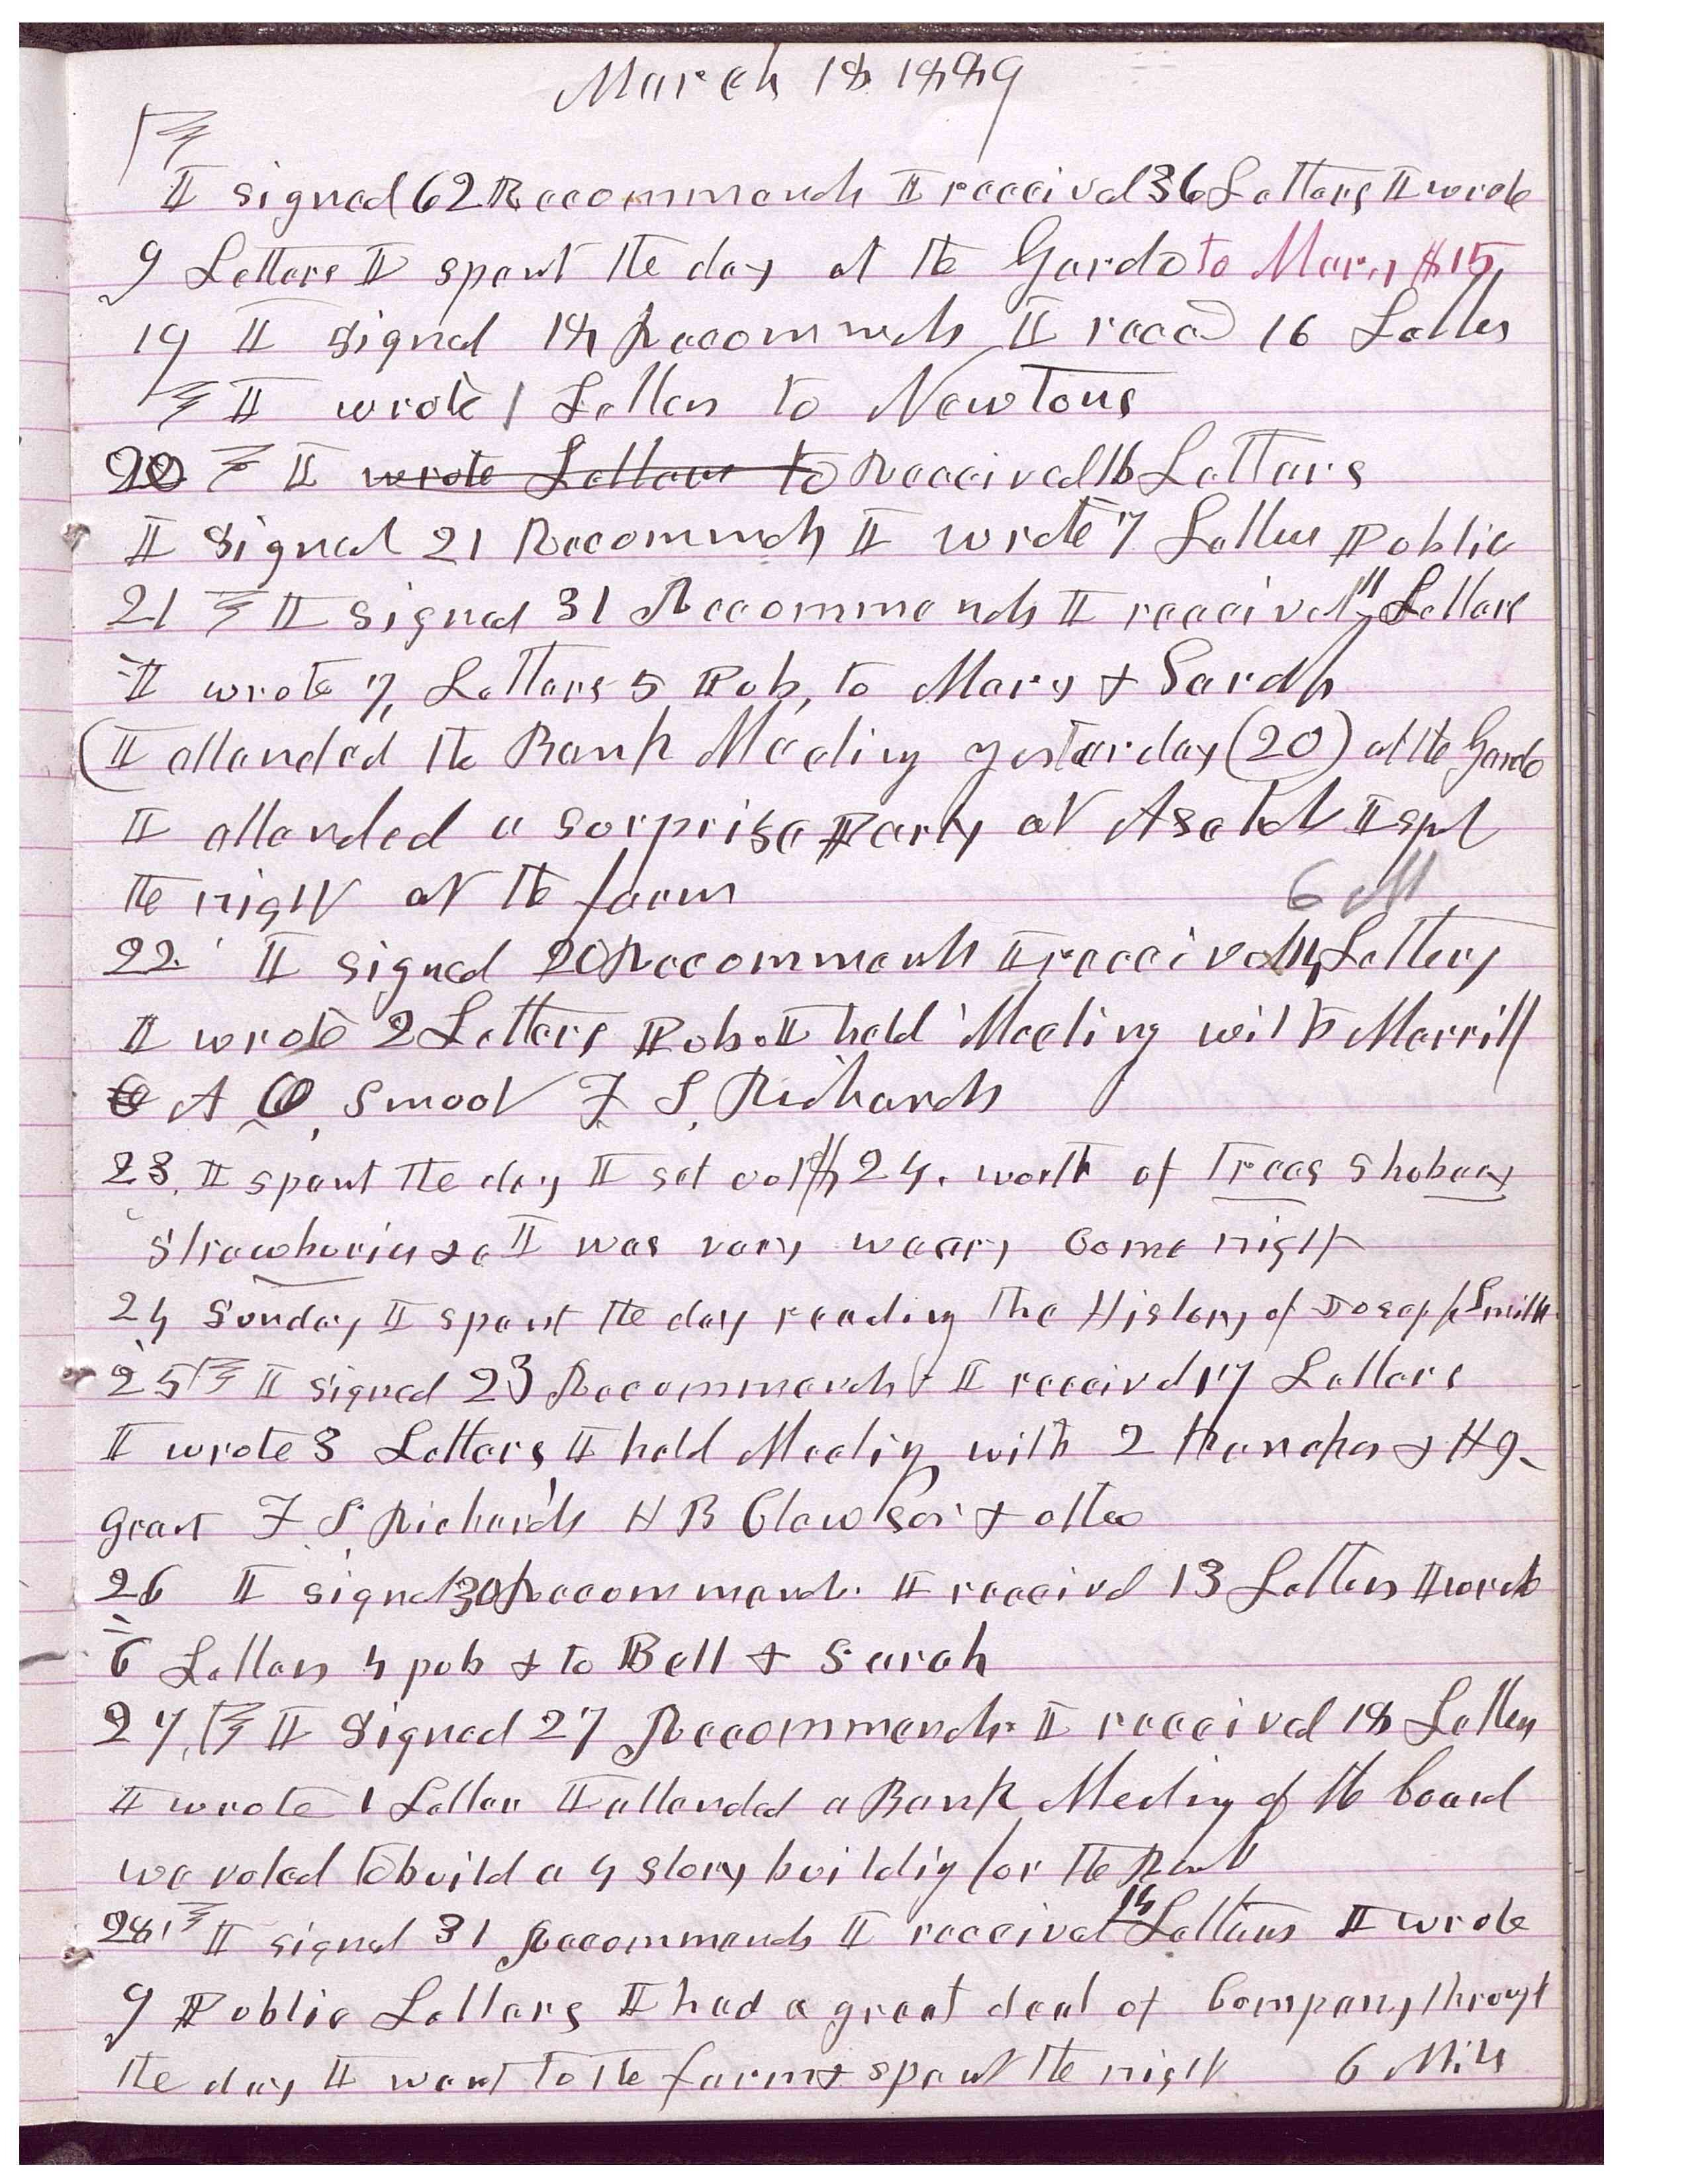 March 18 1889
I signed 62 Recommends I received 36 Letters I wrote
9 Letters I spent the day at the Gardo to Mary $15,
19 I signed 18 Recommds I recd 16 Letters
I wrote 1 Letter to Newtons
20 I wrote Letters to Received 16 Letters
I signed 21 Recommds I wrote 7 Letters Public
21 I signed 31 Recommends I received 11 Letters
I wrote 7, Letters 5 Pub, to Mary & Sarah
(I attended the Bank Meeting yesterday (20) at the Gardo
I attended a surprise Party at Asahel I spt
the night at the farm 6 M
22 I signed 20 Recommends I received 14 Letters
I wrote 2 Letters Pub. I held Meeting with Merrill
A O, Smoot F S, Richards
23, I spent the day I set out $24. worth of Trees
Strawburies &c I was very weary Come night
24 Sunday I spent the day reading the History of Joseph Smith
25 I signed 23 Recommends I received 17 Letters
I wrote 3 Letters, I held Meeting with 2 & H J
Grant F S Richards H B Clawson & others
26 I signed 30 Recommends. I receivd 13 Letters I wrote
6 Letters 4 pub & to Bell & Sarah
27, I Signed 27 Recommends I received 18 Letters
I wrote 1 Letter I attended a Bank Meeting of the board
we voted to build a 4 story buildig for the
28, I signed 31 Recommends I received 14 Letters I wrote
9 Public Letters I had a great deal of Company through
the day I went to the farm & spent the night 6 Mils